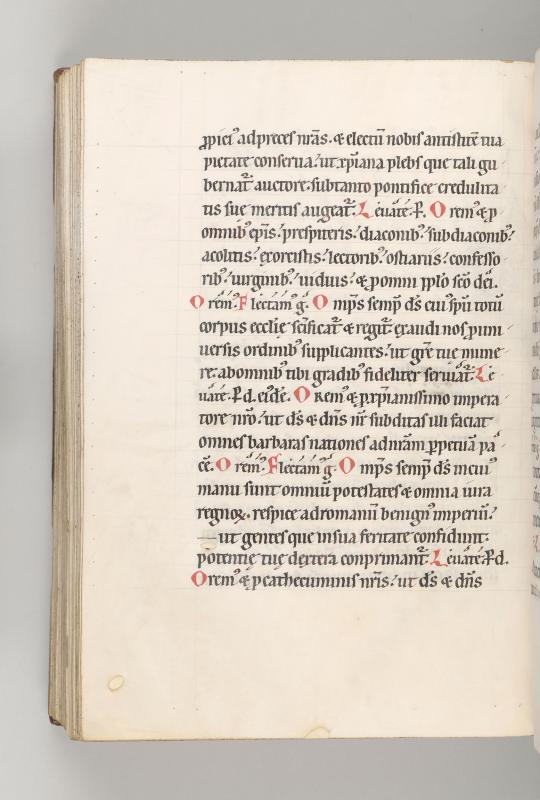 ꝓpici᷒ ad preces nr̄as. & electū nobis antistitē tua
pietate conserua. ut xp̄iana plebs que tali gu
bernat᷑ auctore. sub tanto pontifice credulita
tis sue meritis augeat᷑. Leuāte. P. Orem᷒ & ꝓ
omnib᷒ ep̄is. presp̄iteris. diaconib᷒. subdiaconib᷒.
acolitis. exorcistis. lectorib᷒. ostiariis. confesso
rib᷒. uirginib᷒. uiduis. & ꝓ omni pp̄lo sc̄o dei.
Orēm᷒. Flectam᷒ ḡ. Omp̄s semp̄ ds̄ cui᷒ sp̄u totū
corpus ecclīe sc̄ificat᷑ & regit᷑. exaudi nos ꝓ uni
uersis ordinib᷒ supplicantes. ut gr̄e tue mune
re. ab omnib᷒ tibi gradib᷒ fideliter seruiat᷑. Le
uāte. P. d. eiđē. Orem᷒ & ꝓ xp̄ianissimo impera
tore nr̄o. ut ds̄ & dn̄s nr̄ subditas illi faciat
omnes barbaras nationes ad nr̄am ꝑpetuā pa
cē. Orēm᷒. Flectam᷒ ḡ. Omp̄s semp̄ ds̄ in cui᷒
manu sunt omniū potestates & omnia iura
regnoꝝ. respice ad romanū benign᷒ imperiū.
ut gentes que in sua feritate confidunt.
potentie tue dextera conprimant᷑. Leuāte P. d.
Orem᷒ & ꝓ cathecuminis nr̄is. ut ds̄ & dn̄s